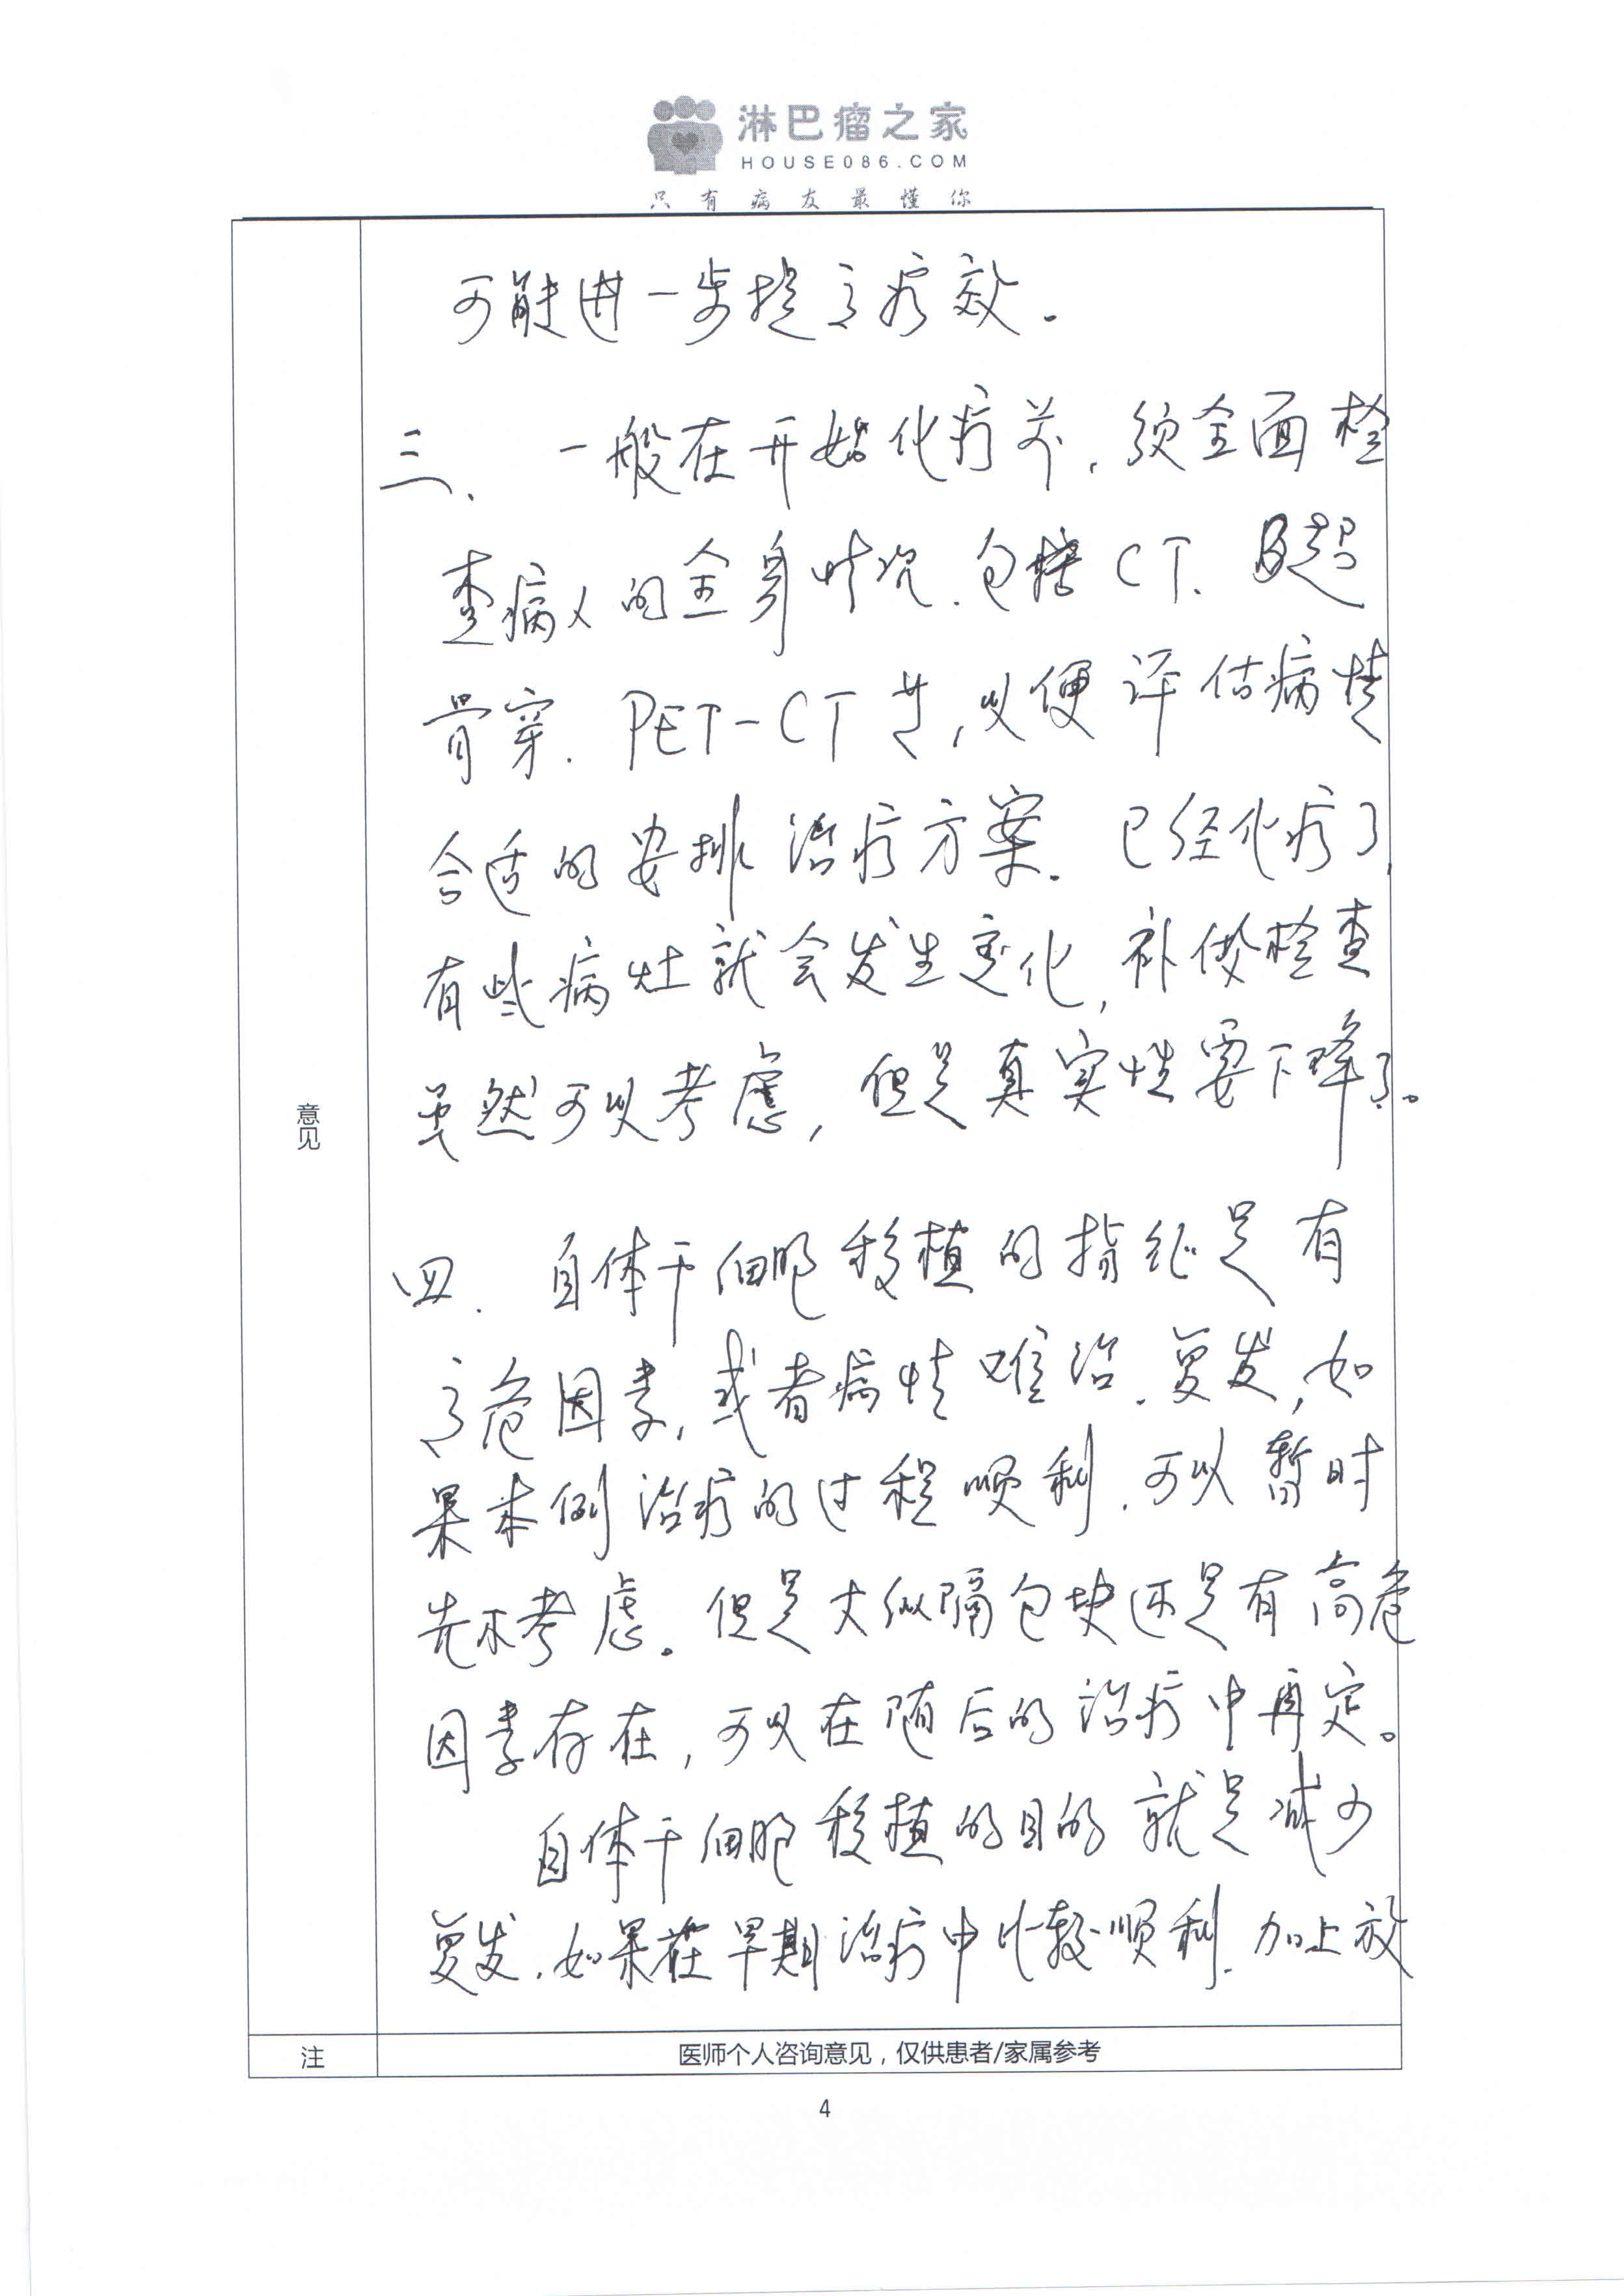 淋巴瘤之家
HOUSE086.COM
只有病友最懂你
可能进一步提高疗效。
三、一般在开始化疗前，须全面检
查病人的全身情况、包括CT、B超
骨穿、PET-CT等，以便评估病情
合适的安排治疗方案。已经化疗了，
有些病灶就会发生变化，补做检查
虽然可以考虑，但是真实性要下降了。
意见
四、自体干细胞移植的指征是有
高危因素，或者病情难治、复发，如
果本例治疗的过程顺利，可以暂时
先不考虑。但是大纵隔包块还是有高危
因素存在，可以在随后的治疗中再定。
自体干细胞移植的目的就是减少
复发，如果在早期治疗中比较顺利，加上放
注 医师个人咨询意见，仅供患者/家属参考
4